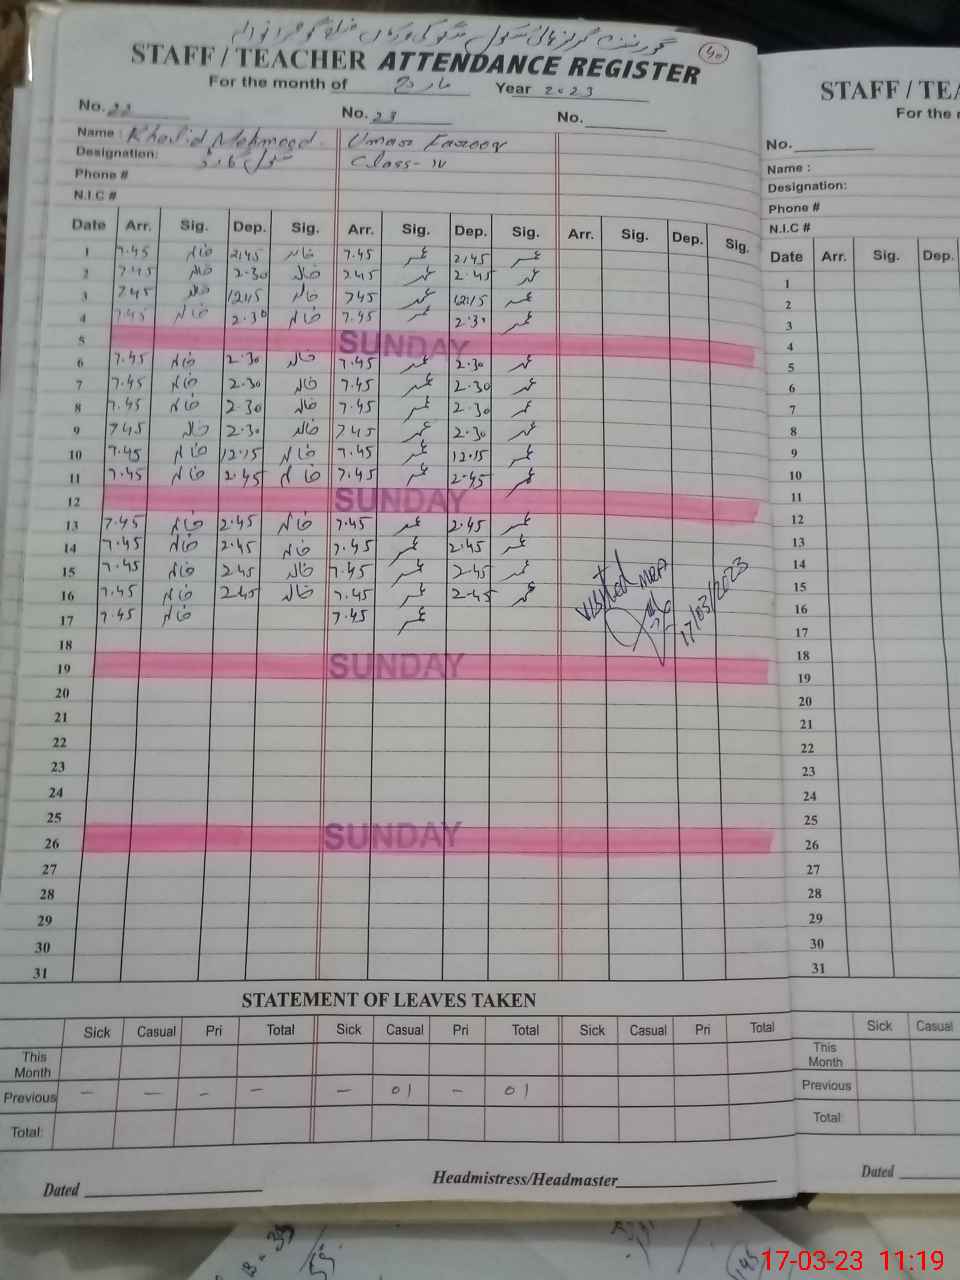 گورنمنٹ گرلز ہائی سکول
40
STAFF / TEACHER ATTENDANCE REGISTER
For the month of مارچ Year 2023
No. 22 No. 23 No.
Name : Khalid Mehmood Umar Farooq
Designation: Class-IV
Phone #
N.I.C #
Date Arr. Sig. Dep. Sig. Arr. Sig. Dep. Sig. Arr. Sig. Dep. Sig.
1 7.45 خالد 2.45 خالد 7.45 عمر 2.45 عمر
2 7.45 خالد 2.30 خالد 2.45 عمر 2.45 عمر
3 7.45 خالد 12.15 خالد 7.45 عمر 12.15 عمر
4 7.45 خالد 2.30 خالد 7.45 عمر 2.30 عمر
5 SUNDAY
6 7.45 خالد 2.30 خالد 7.45 عمر 2.30 عمر
7 7.45 خالد 2.30 خالد 7.45 عمر 2.30 عمر
8 7.45 خالد 2.30 خالد 7.45 عمر 2.30 عمر
9 7.45 خالد 2.30 خالد 7.45 عمر 2.30 عمر
10 7.45 خالد 12.15 خالد 7.45 عمر 12.15 عمر
11 7.45 خالد 2.45 خالد 7.45 عمر 2.45 عمر
12 SUNDAY
13 7.45 خالد 2.45 خالد 7.45 عمر 2.45 عمر
14 7.45 خالد 2.45 خالد 7.45 عمر 2.45 عمر
15 7.45 خالد 2.45 خالد 7.45 عمر 2.45 عمر
16 7.45 خالد 2.45 خالد 7.45 عمر 2.45 عمر
17 7.45 خالد 7.45 عمر
Visited MEA
17/03/2023
18
19 SUNDAY
20
21
22
23
24
25
26 SUNDAY
27
28
29
30
31
STATEMENT OF LEAVES TAKEN
Sick Casual Pri Total Sick Casual Pri Total Sick Casual Pri Total
This Month
Previous — — - - — 01 - 01
Total:
Dated Headmistress/Headmaster
STAFF / TEA
For the
No.
Name :
Designation:
Phone #
N.I.C #
Date Arr. Sig. Dep.
1
2
3
4
5
6
7
8
9
10
11
12
13
14
15
16
17
18
19
20
21
22
23
24
25
26
27
28
29
30
31
Sick Casual
This Month
Previous
Total:
Dated
17-03-23 11:19